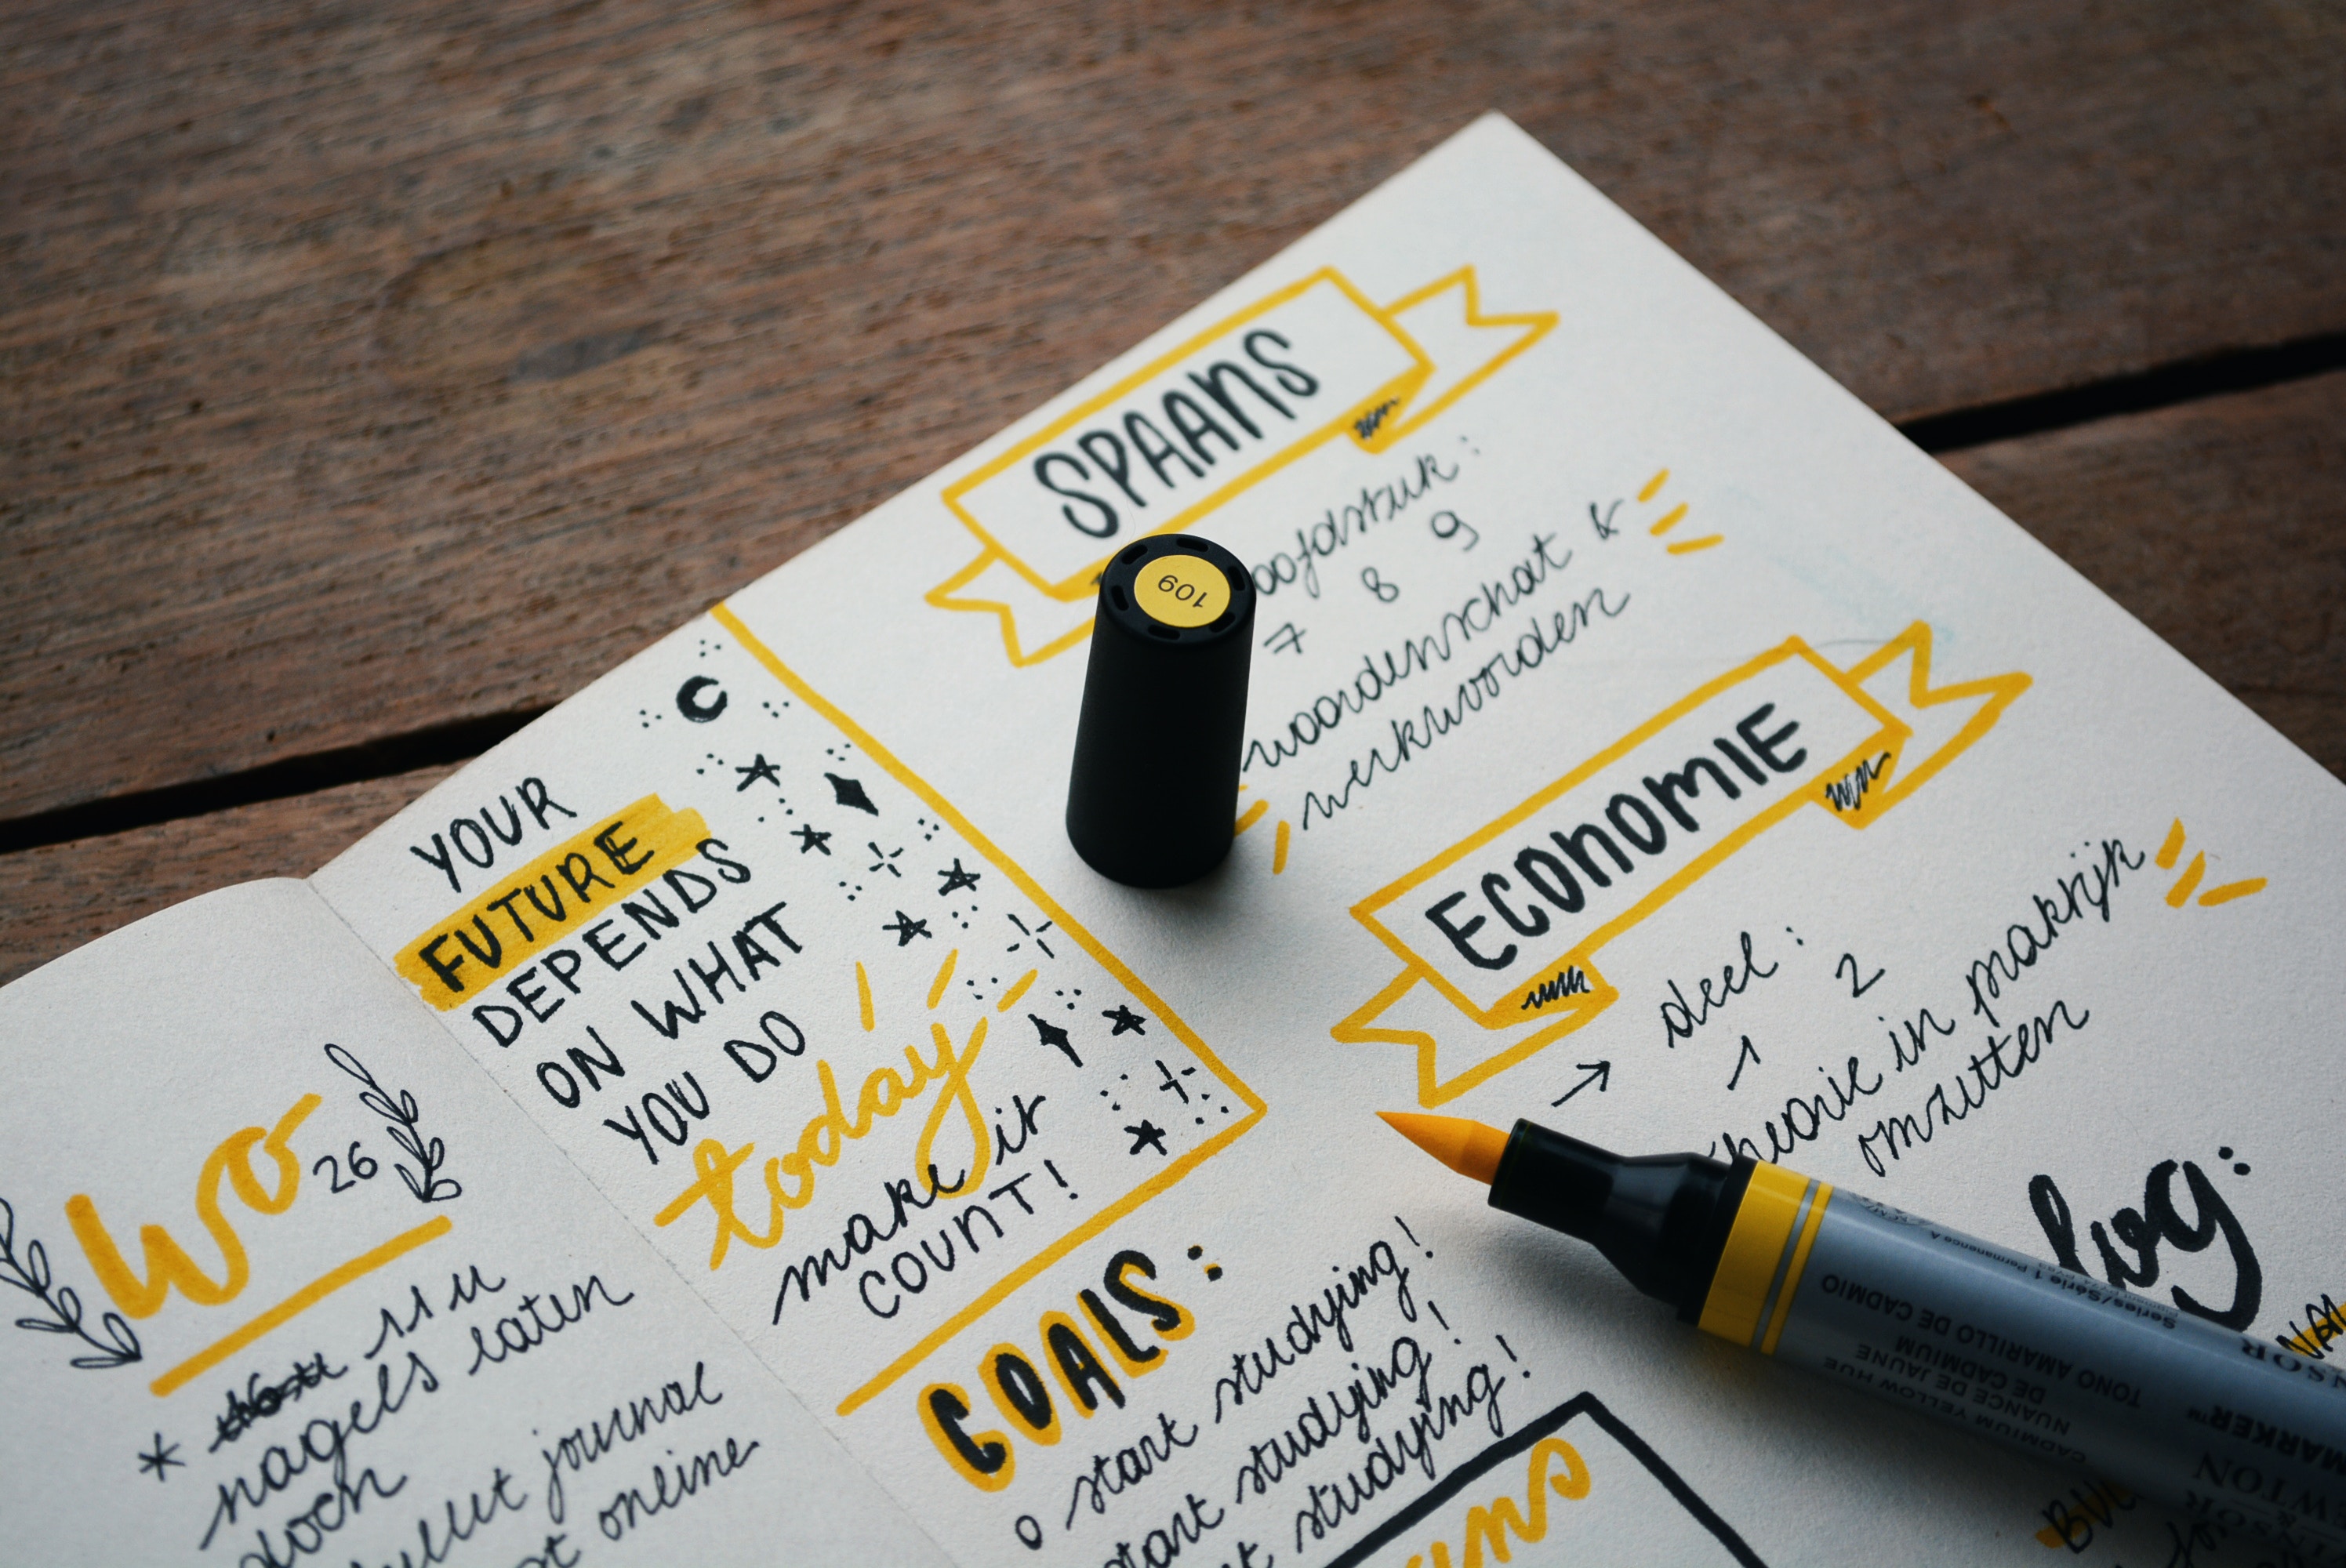 wo
26
11 u
nagels laten
doen
bullet journal
online
YOUR
FUTURE
DEPENDS
ON WHAT
YOU DO
today
make it
COUNT!
GOALS:
o start studying!
start studying!
studying!
SPAANS
hoofdstuk:
7 8 9
woordenschat &
werkwoorden
ECONOMIE
→ deel:
1 2
theorie in praktijk
omzetten
log:
109
Series/Série 1 Permanence A
CADMIUM YELLOW HUE
NUANCE DE JAUNE
DE CADMIUM
TONO AMARILLO DE CADMIO
MARKER™